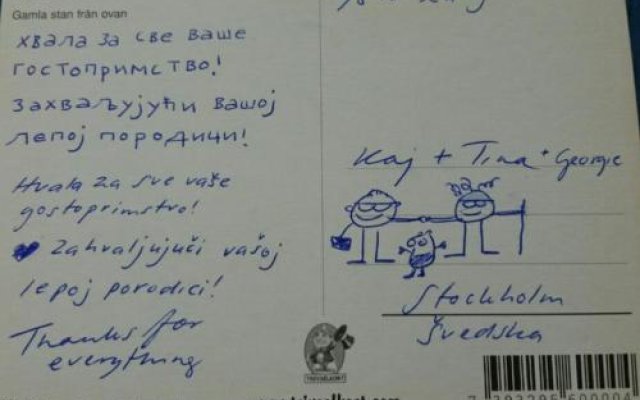 Gamla stan från ovan
хвала за све ваше
гостопримство!
захваљујући вашој
лепој породици!
Hvala za sve vaše
gostoprimstvo!
Zahvaljujući vašoj
lepoj porodici!
Thanks for
everything
Kaj + Tina + Georgie
Stockholm
Švedska